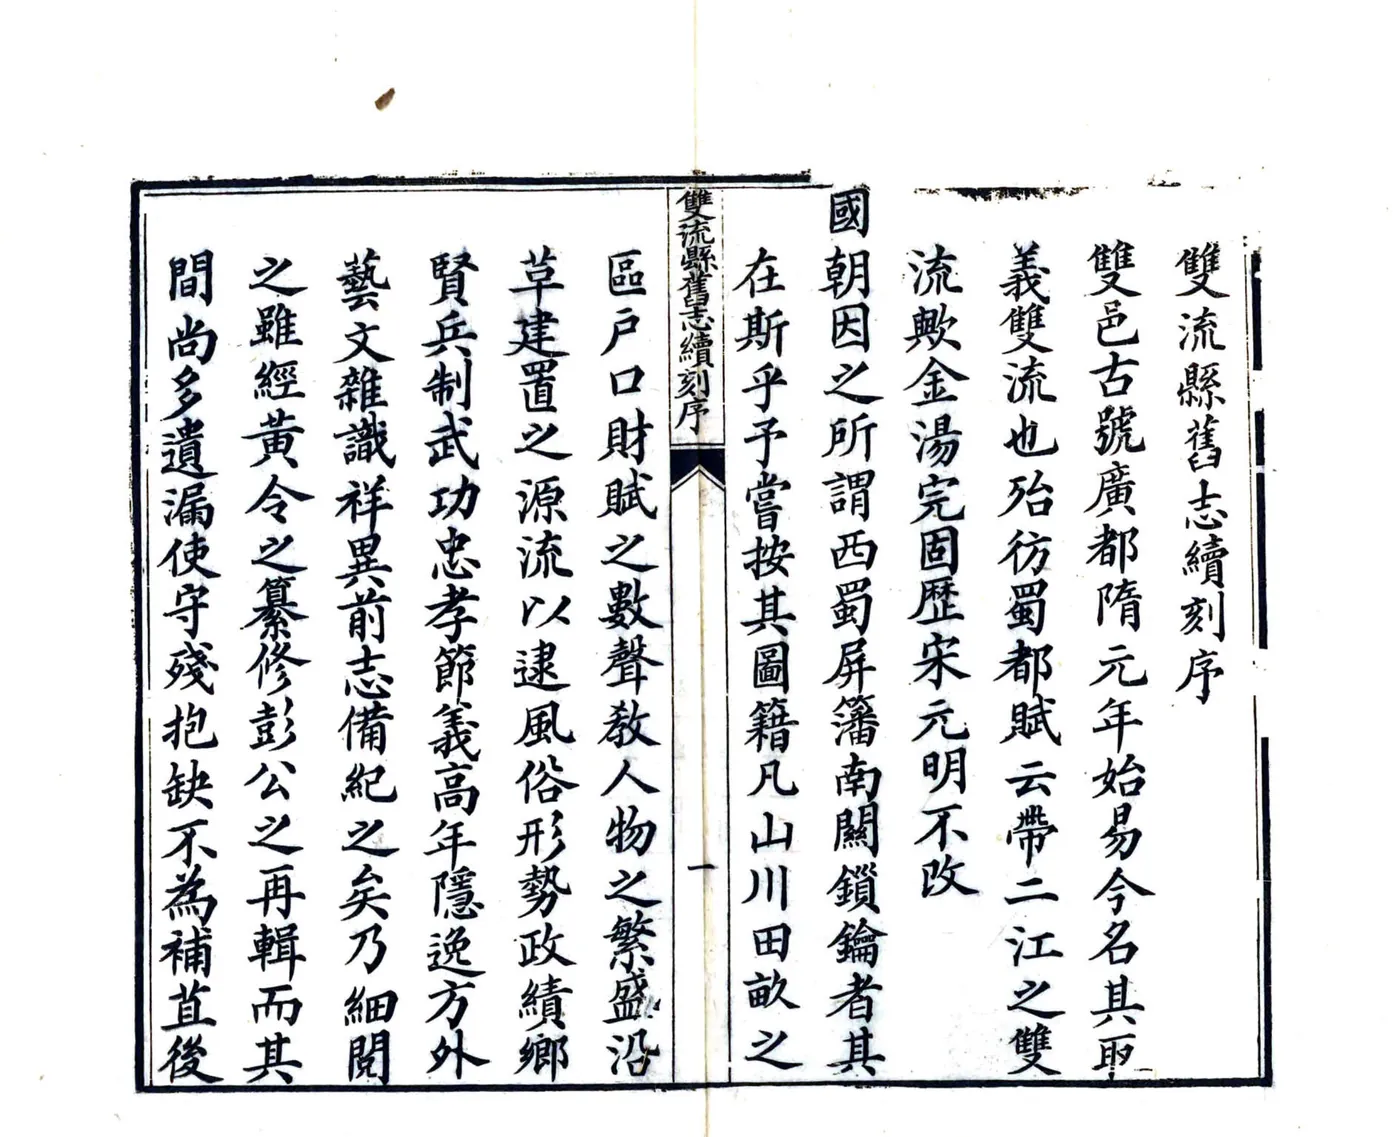 雙流縣舊志續刻序
雙邑古號廣都隋元年始易今名其取
義雙流也殆彷蜀都賦云帶二江之雙
流歟金湯完固歴宋元明不改
國朝因之所謂西蜀屏籓南關鎖鑰者其
在斯乎予嘗按其圖籍凡山川田畝之
雙流縣舊志續刻序
一
區戶口財賦之數聲教人物之繁盛沿
草建置之源流以逮風俗形勢政績鄉
賢兵制武功忠孝節義高年隱逸方外
藝文雜識祥異前志備紀之矣乃細閱
之雖經黃令之纂修彭公之再輯而其
間尚多遺漏使守殘抱缺不為補苴後